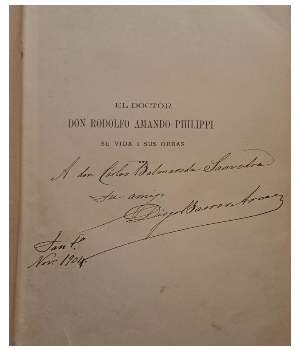 EL DOCTOR
DON RODOLFO AMANDO PHILIPPI
SU VIDA I SUS OBRAS
A don Carlos Balmaceda Saavedra
su amigo
Diego Barros Arana
Sant.º
Nov. 1904